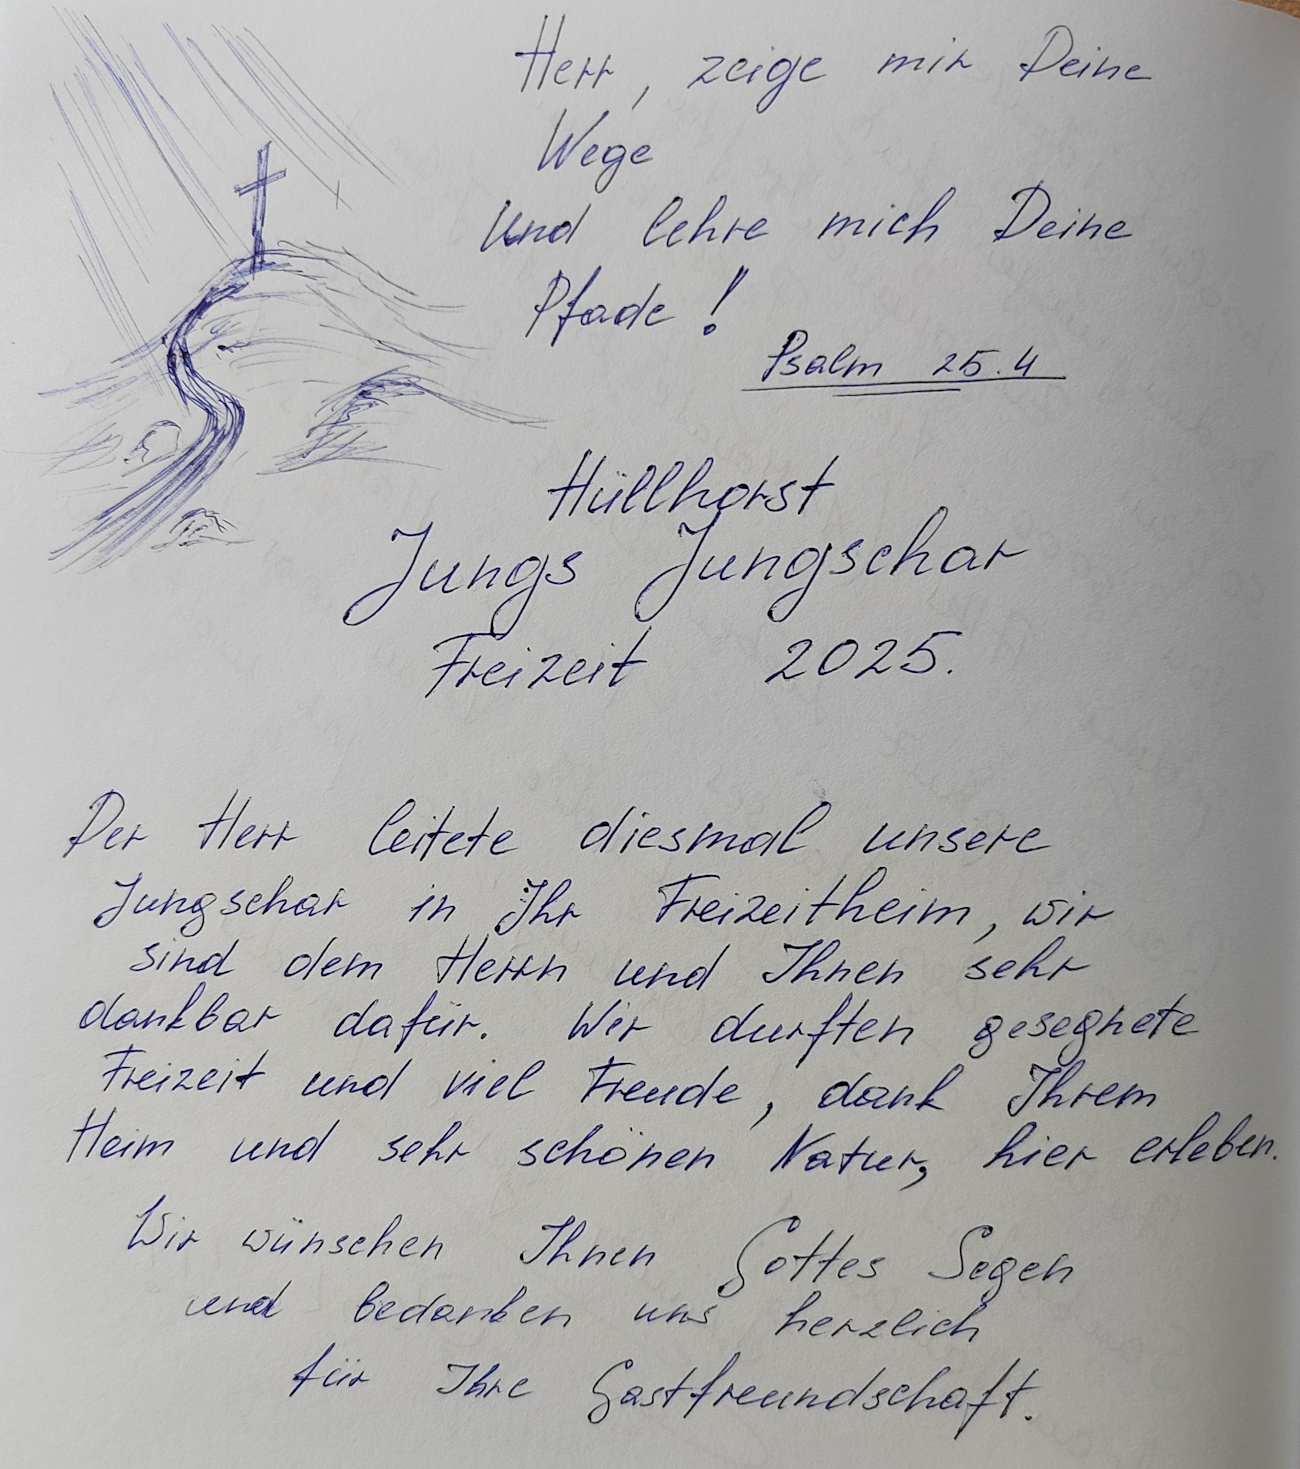 Herr, zeige mir Deine
Wege
Und lehre mich Deine
Pfade!
Psalm 25.4
Hüllhorst
Jungs Jungschar
Freizeit 2025.
Der Herr leitete diesmal unsere
Jungschar in Ihr Freizeitheim, wir
sind dem Herrn und Ihnen sehr
dankbar dafür. Wir durften gesegnete
Freizeit und viel Freude, dank Ihrem
Heim und sehr schönen Natur, hier erleben.
Wir wünschen Ihnen Gottes Segen
und bedanken uns herzlich
für Ihre Gastfreundschaft.